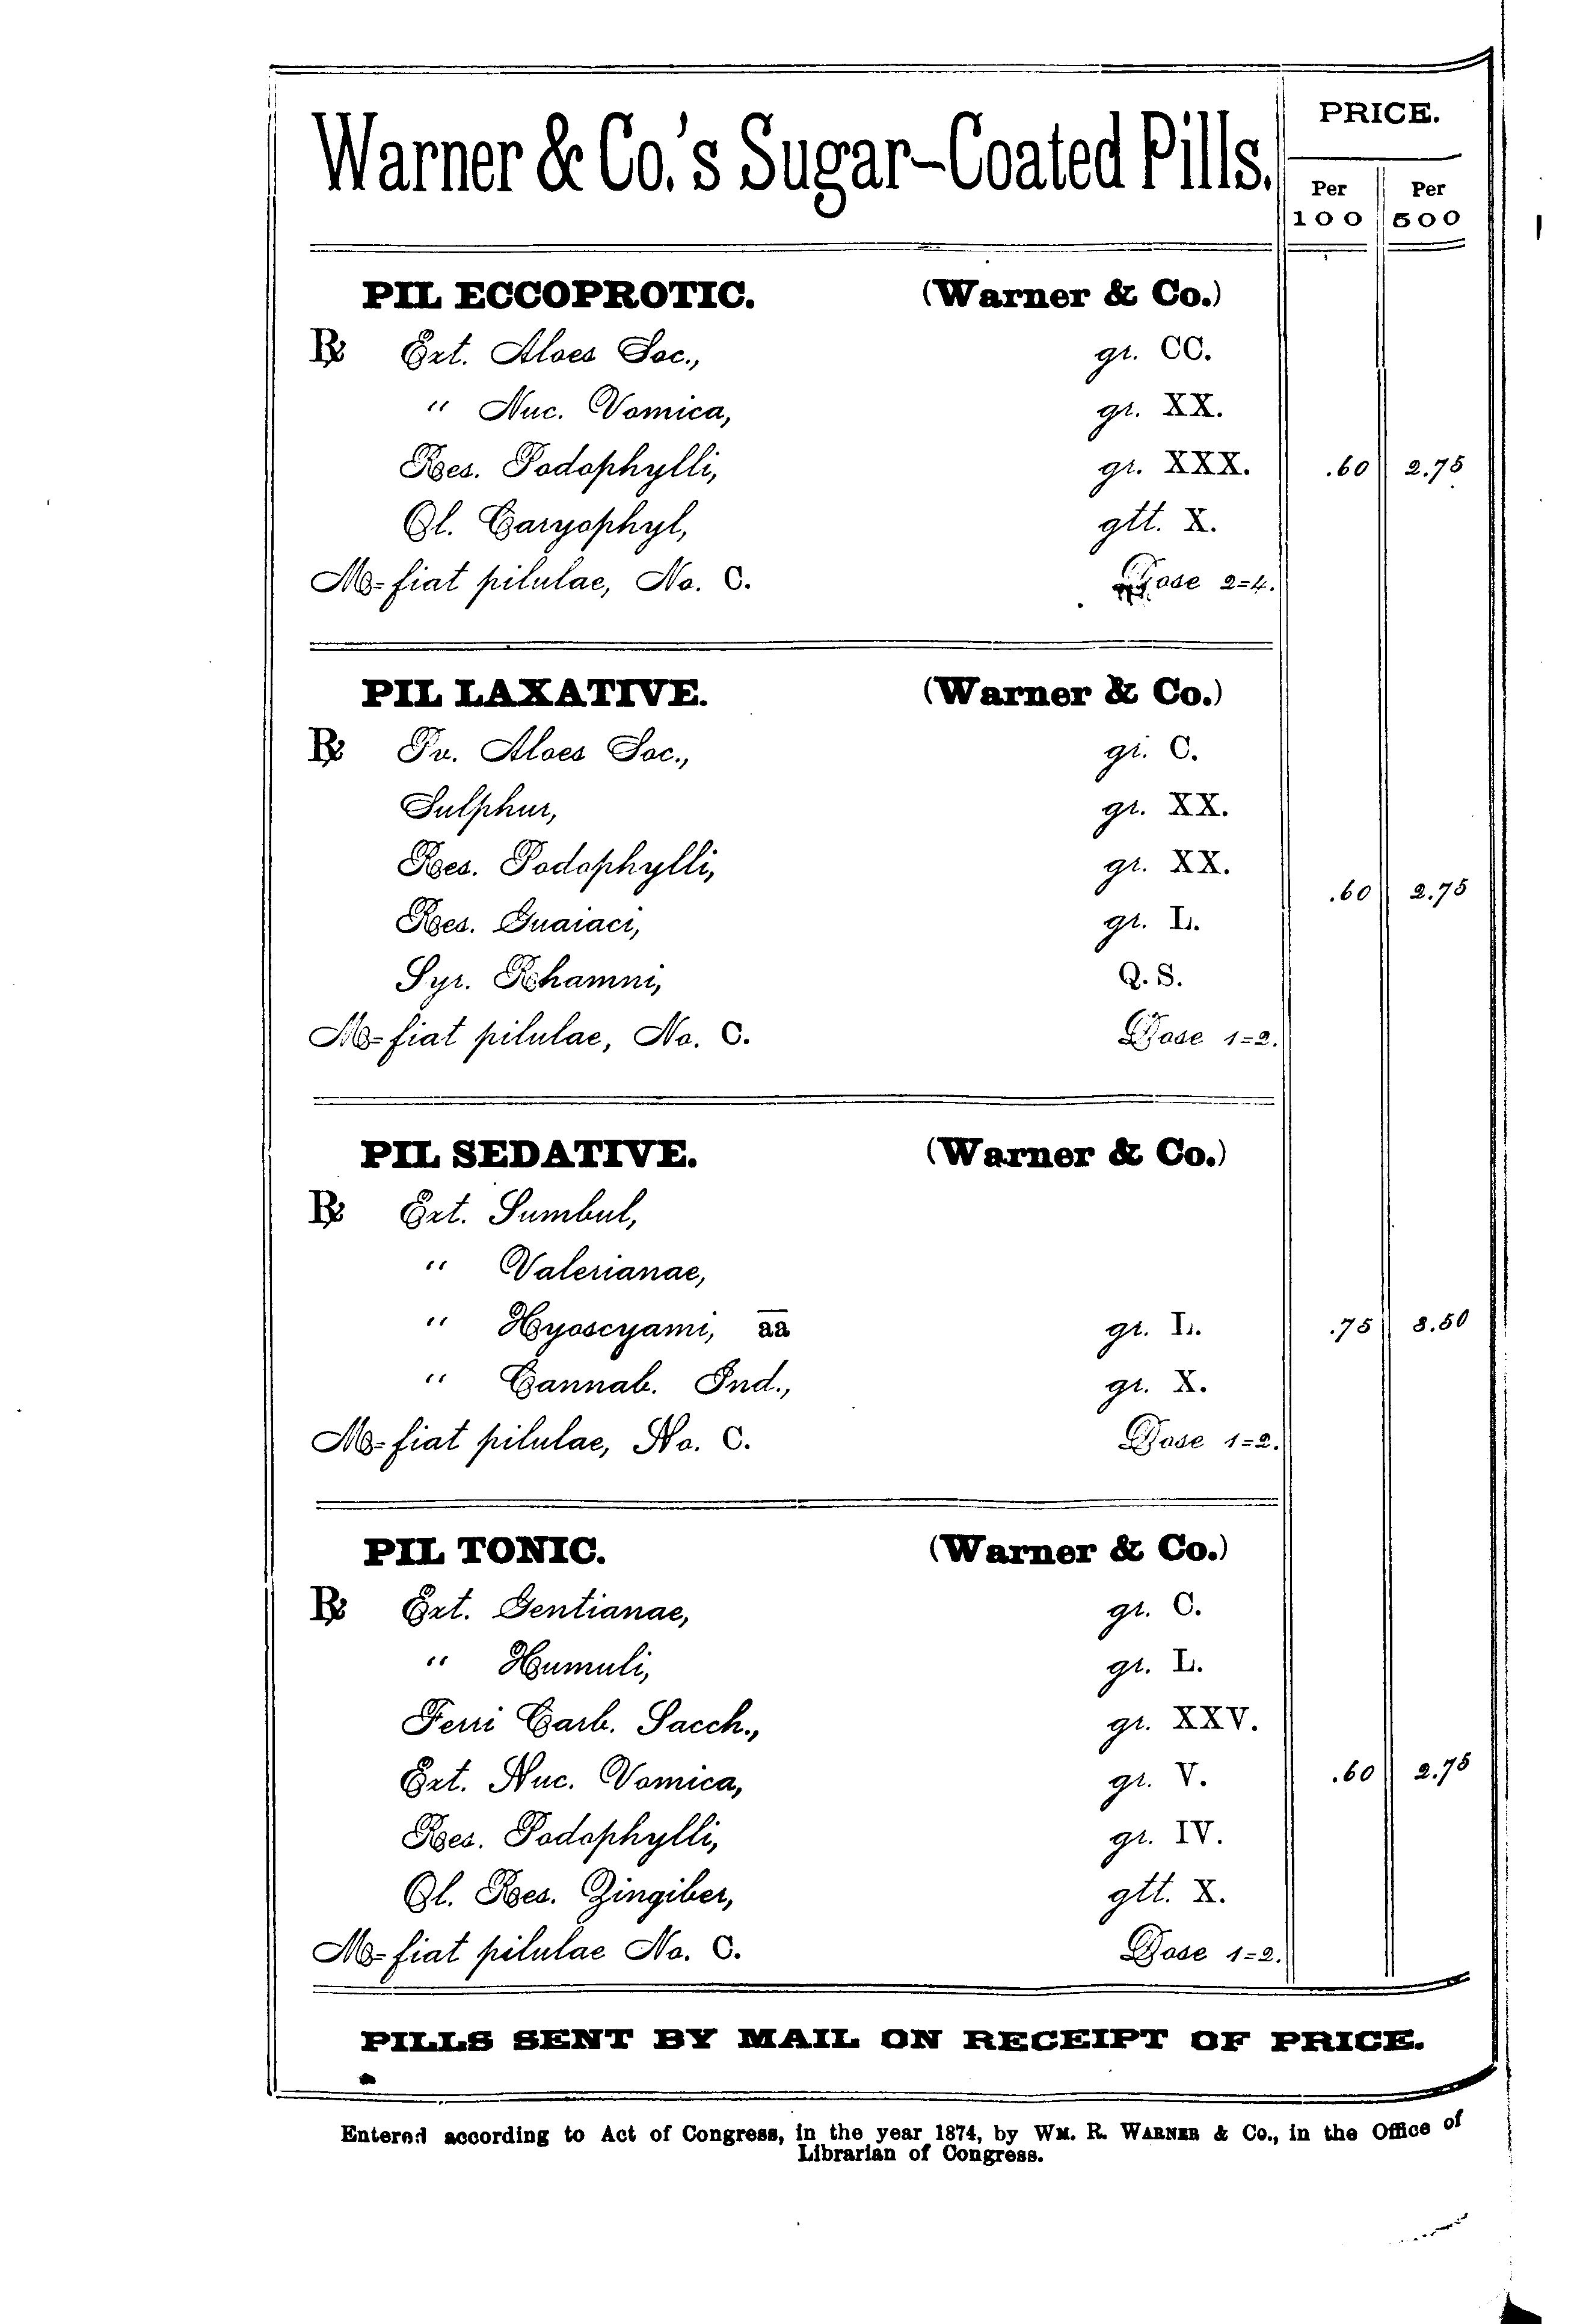 Warner & Co.'s Sugar-Coated Pills.
PRICE.
Per 100
Per 500
PIL ECCOPROTIC. (Warner & Co.)
℞ Ext. Aloes Soc., gr. CC.
“ Nuc. Vomica, gr. XX.
Res. Podophylli, gr. XXX. .60 2.75
Ol. Caryophyl, gtt. X.
M-fiat pilulae, No. C. Dose 2=4.
PIL LAXATIVE. (Warner & Co.)
℞ Pv. Aloes Soc., gr. C.
Sulphur, gr. XX.
Res. Podophylli, gr. XX.
.60 2.75
Res. Guaiaci, gr. L.
Syr. Rhamni, Q. S.
M-fiat pilulae, No. C. Dose 1=2.
PIL SEDATIVE. (Warner & Co.)
℞ Ext. Sumbul,
“ Valerianae,
“ Hyoscyami, aa gr. L. .75 3.50
“ Cannab. Ind., gr. X.
M-fiat pilulae, No. C. Dose 1=2.
PIL TONIC. (Warner & Co.)
℞ Ext. Gentianae, gr. C.
“ Humuli, gr. L.
Ferri Carb. Sacch., gr. XXV.
Ext. Nuc. Vomica, gr. V. .60 2.75
Res. Podophylli, gr. IV.
Ol. Res. Zingiber, gtt. X.
M-fiat pilulae No. C. Dose 1=2.
PILLS SENT BY MAIL ON RECEIPT OF PRICE.
Entered according to Act of Congress, in the year 1874, by WM. R. WARNER & CO., in the Office of
Librarian of Congress.